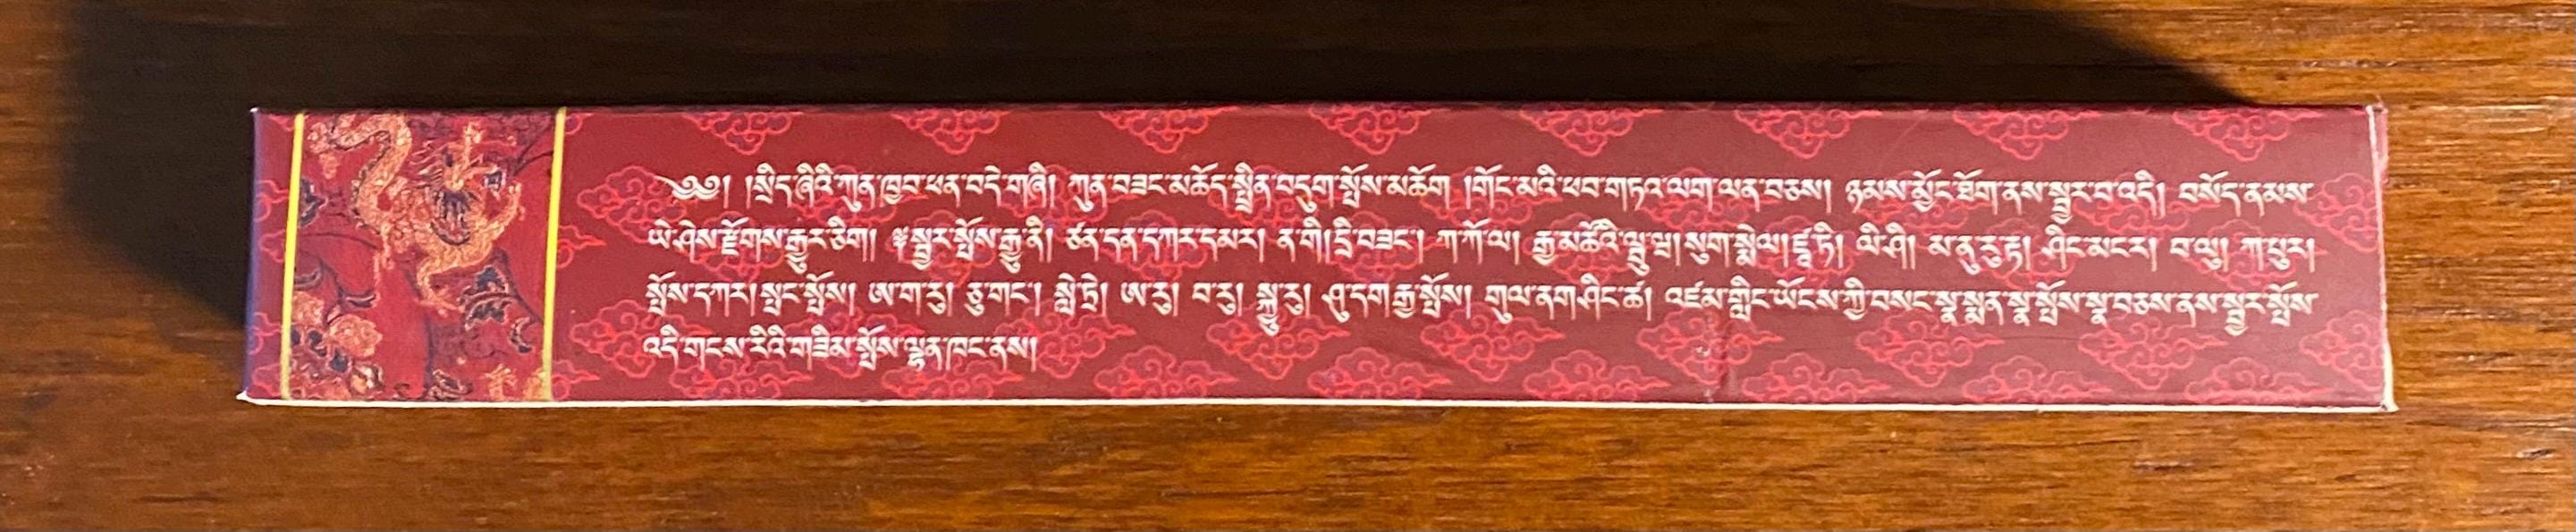 ༄༅། །སྲིད་ཞིའི་ཀུན་ཁྱབ་ཕན་བདེ་གཞི། ཀུན་བཟང་མཆོད་སྤྲིན་བདུག་སྤོས་མཆོག །གོང་མའི་ཕབ་གཏའ་ལག་ལན་བཅས། ཉམས་མྱོང་ཐོག་ནས་སྦྱར་བ་འདི། བསོད་ནམས་
ཡེ་ཤེས་རྫོགས་རྒྱུར་ཅིག། སྦྱར་སྤོས་རྒྱུ་ནི། ཙན་དན་དཀར་དམར། ན་གི། དྲི་བཟང་། ཀ་ཀོ་ལ། རྒྱ་མཚོའི་ལྦུ་བ། སུག་སྨེལ། ཛཱ་ཏི། ལི་ཤི། མ་ནུ་རུ་རྟ། ཤིང་མངར། བ་ལུ། ཀ་པུར།
སྤོས་དཀར། སྤང་སྤོས། ཨ་ག་རུ། ཅུ་གང་། སླེ་ཏྲེ། ཨ་རུ། བ་རུ། སྐྱུ་རུ། ཤུ་དག་རྒྱ་སྤོས། གུལ་ནག་ཤིང་ཚ། འཛམ་གླིང་ཡོངས་ཀྱི་བསང་སྣ་སྨན་སྣ་སྤོས་སྣ་བཅས་ནས་སྦྱར་སྤོས་
འདི་གངས་རིའི་གཟིམ་སྤོས་ལྷན་ཁང་ནས།